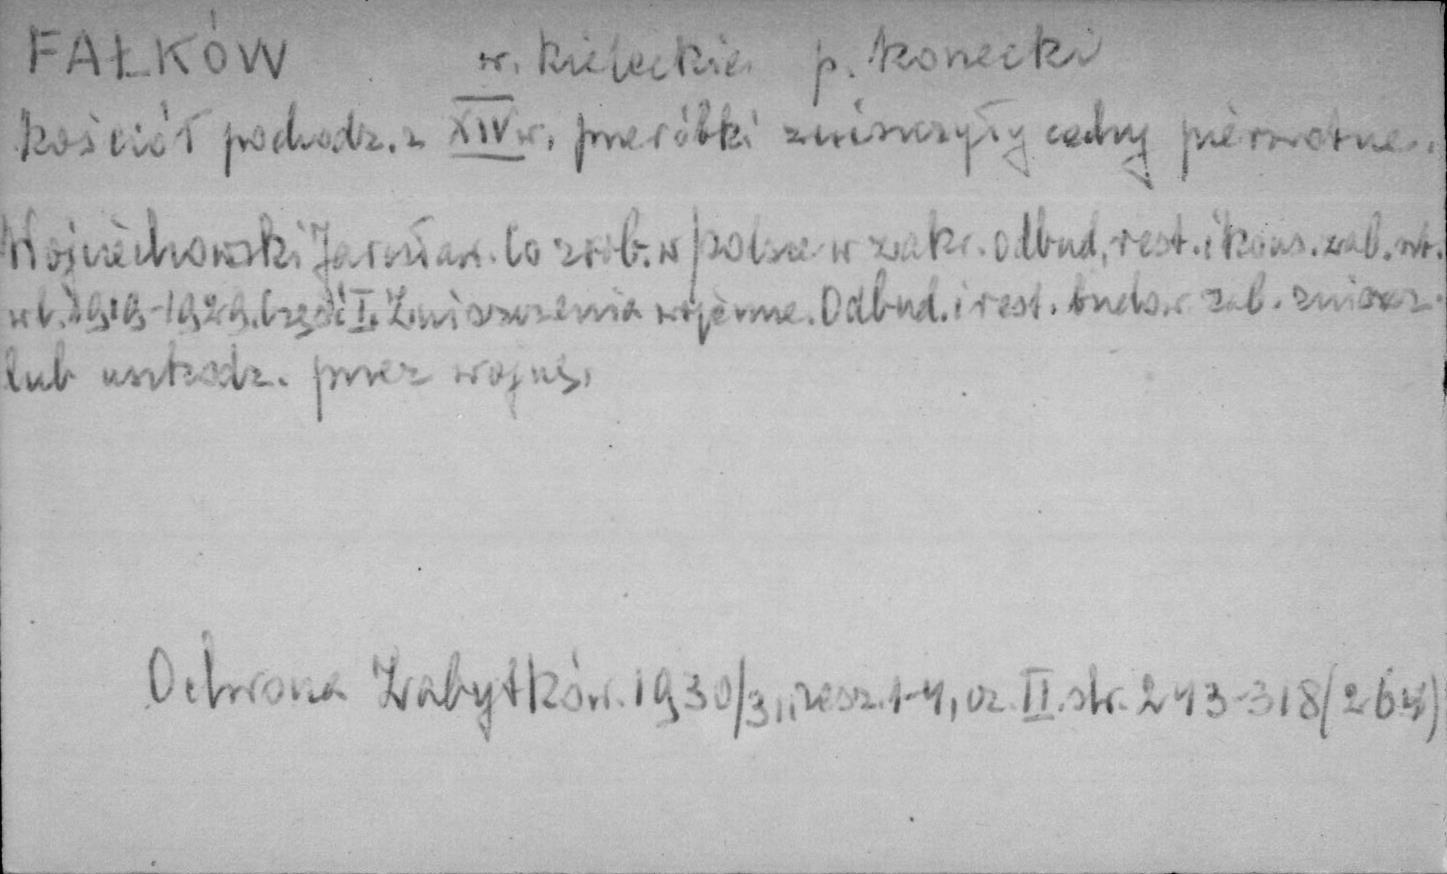 FAŁKÓW w. kieleckie p. konecki
Kościół pochodz. z XIV w. przeróbki zniszczyły cechy pierwotne.
Wojciechowski Jarosław. Co zrob. w Polsce w zakr. odbud, rest. i kons. zab. szt.
w l. 1919-1929. Część I. Zniszczenia wojenne. Odbud. i rest. budow. zab. zniszcz.
lub uszkodz. przez wojnę.
Ochrona Zabytków. 1930/31, zesz. 1-4, cz. II. str. 243-318 (264)